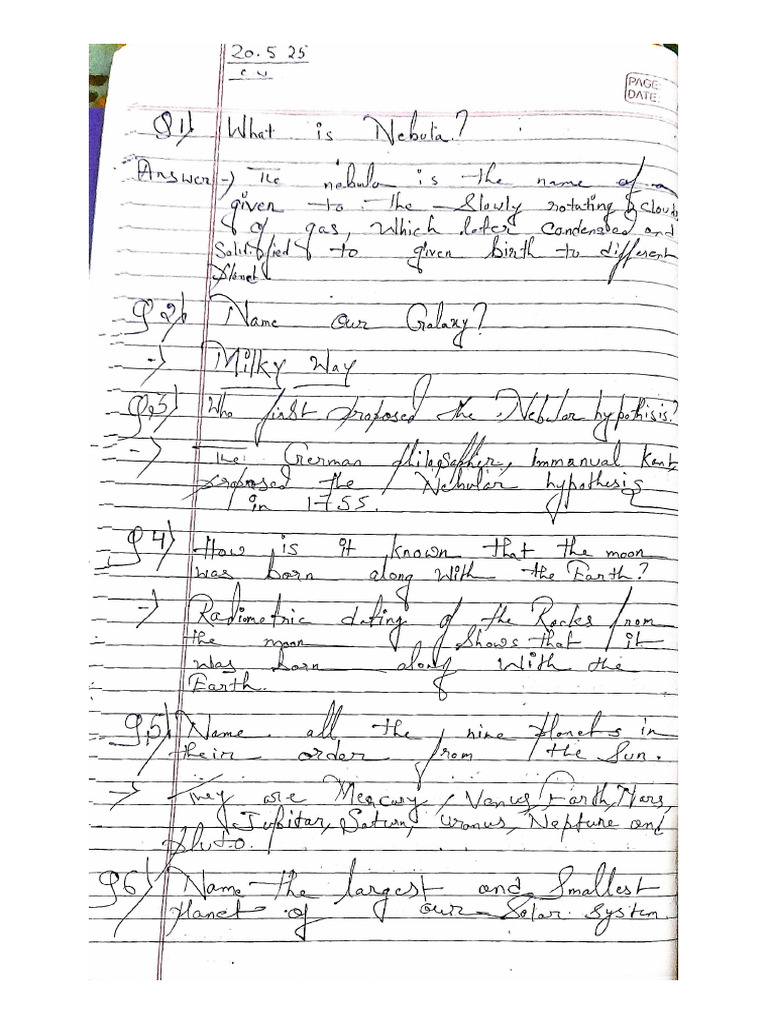 20.5.25
C W
PAGE:
DATE:
Q1) What is Nebula?
Answer → The nebula is the name of a
given to the slowly rotating cloud
of gas, which later condensed and
Solitified to given birth to different
planet
Q2) Name our Galaxy?
→ Milky Way
Q.3) Who first proposed the Nebular hypothisis?
→ The German philosopher, Immanual Kant
proposed the Nebular hypothesis
in 1755.
Q4) How is it known that the moon
was born along with the Earth?
→ Radiometric dating of the Rocks from
the moon shows that it
was born along with the
Earth.
Q.5) Name all the nine planets in
their order from the Sun.
→ They are Mercury, Venus, Earth, Mars,
Jupitar, Saturn, Uranus, Neptune and
Pluto.
Q6) Name the largest and Smallest
planet of our Solar System.